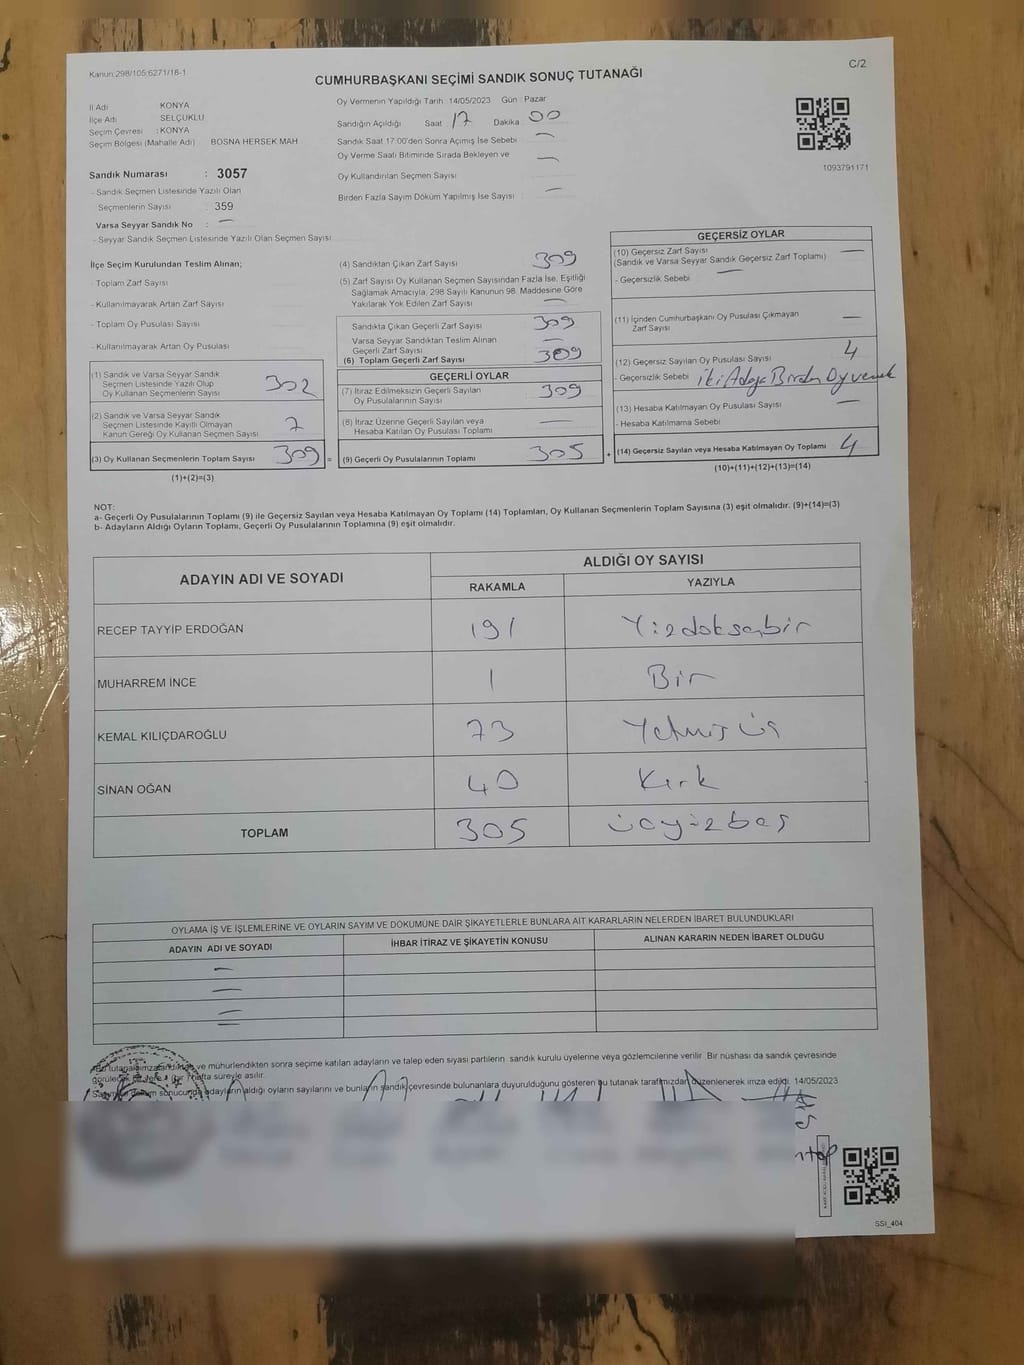 Kanun:298/105;6271/18-1
C/2
CUMHURBAŞKANI SEÇİMİ SANDIK SONUÇ TUTANAĞI
İl Adı KONYA
İlçe Adı SELÇUKLU
Seçim Çevresi : KONYA
Seçim Bölgesi (Mahalle Adı) BOSNA HERSEK MAH
Oy Vermenin Yapıldığı Tarih 14/05/2023 Gün : Pazar
Sandığın Açıldığı Saat 17 Dakika 00
Sandık Saat 17:00'den Sonra Açımış İse Sebebi —
Oy Verme Saati Bitiminde Sırada Bekleyen ve
Oy Kullandırılan Seçmen Sayısı —
Birden Fazla Sayım Döküm Yapılmış İse Sayısı : —
1093791171
Sandık Numarası : 3057
- Sandık Seçmen Listesinde Yazılı Olan
Seçmenlerin Sayısı : 359
Varsa Seyyar Sandık No : —
- Seyyar Sandık Seçmen Listesinde Yazılı Olan Seçmen Sayısı
İlçe Seçim Kurulundan Teslim Alınan;
- Toplam Zarf Sayısı
- Kullanılmayarak Artan Zarf Sayısı
- Toplam Oy Pusulası Sayısı
- Kullanılmayarak Artan Oy Pusulası
(1) Sandık ve Varsa Seyyar Sandık
Seçmen Listesinde Yazılı Olup
Oy Kullanan Seçmenlerin Sayısı 302
(2) Sandık ve Varsa Seyyar Sandık
Seçmen Listesinde Kayıtlı Olmayan
Kanun Gereği Oy Kullanan Seçmen Sayısı 7
(3) Oy Kullanan Seçmenlerin Toplam Sayısı 309 =
(1)+(2)=(3)
(4) Sandıktan Çıkan Zarf Sayısı 309
(5) Zarf Sayısı Oy Kullanan Seçmen Sayısından Fazla İse, Eşitliği
Sağlamak Amacıyla, 298 Sayılı Kanunun 98. Maddesine Göre
Yakılarak Yok Edilen Zarf Sayısı —
Sandıkta Çıkan Geçerli Zarf Sayısı 309
Varsa Seyyar Sandıktan Teslim Alınan
Geçerli Zarf Sayısı —
(6) Toplam Geçerli Zarf Sayısı 309
GEÇERLİ OYLAR
(7) İtiraz Edilmeksizin Geçerli Sayılan
Oy Pusulalarının Sayısı 309
(8) İtiraz Üzerine Geçerli Sayılan veya
Hesaba Katılan Oy Pusulası Toplamı —
(9) Geçerli Oy Pusulalarının Toplamı 305 +
GEÇERSİZ OYLAR
(10) Geçersiz Zarf Sayısı —
(Sandık ve Varsa Seyyar Sandık Geçersiz Zarf Toplamı)
- Geçersizlik Sebebi —
(11) İçinden Cumhurbaşkanı Oy Pusulası Çıkmayan
Zarf Sayısı —
(12) Geçersiz Sayılan Oy Pusulası Sayısı 4
- Geçersizlik Sebebi İki Adaya Birden Oy vermek
(13) Hesaba Katılmayan Oy Pusulası Sayısı —
- Hesaba Katılmama Sebebi
(14) Geçersiz Sayılan veya Hesaba Katılmayan Oy Toplamı 4
(10)+(11)+(12)+(13)=(14)
NOT:
a- Geçerli Oy Pusulalarının Toplamı (9) ile Geçersiz Sayılan veya Hesaba Katılmayan Oy Toplamı (14) Toplamları, Oy Kullanan Seçmenlerin Toplam Sayısına (3) eşit olmalıdır. (9)+(14)=(3)
b- Adayların Aldığı Oyların Toplamı, Geçerli Oy Pusulalarının Toplamına (9) eşit olmalıdır.
ADAYIN ADI VE SOYADI ALDIĞI OY SAYISI
RAKAMLA YAZIYLA
RECEP TAYYİP ERDOĞAN 191 Yüzdoksanbir
MUHARREM İNCE 1 Bir
KEMAL KILIÇDAROĞLU 73 Yetmiş üç
SİNAN OĞAN 40 Kırk
TOPLAM 305 üçyüzbeş
OYLAMA İŞ VE İŞLEMLERİNE VE OYLARIN SAYIM VE DÖKÜMÜNE DAİR ŞİKAYETLERLE BUNLARA AİT KARARLARIN NELERDEN İBARET BULUNDUKLARI
ADAYIN ADI VE SOYADI İHBAR İTİRAZ VE ŞİKAYETİN KONUSU ALINAN KARARIN NEDEN İBARET OLDUĞU
—
—
—
—
ve mühürlendikten sonra seçime katılan adayların ve talep eden siyasi partilerin sandık kurulu üyelerine veya gözlemcilerine verilir. Bir nüshası da sandık çevresinde
(bir) hafta süreyle asılır.
sonucunda adayların aldığı oyların sayılarını ve bunların sandık çevresinde bulunanlara duyurulduğunu gösteren bu tutanak tarafımızdan düzenlenerek imza edildi. 14/05/2023
SSI_404